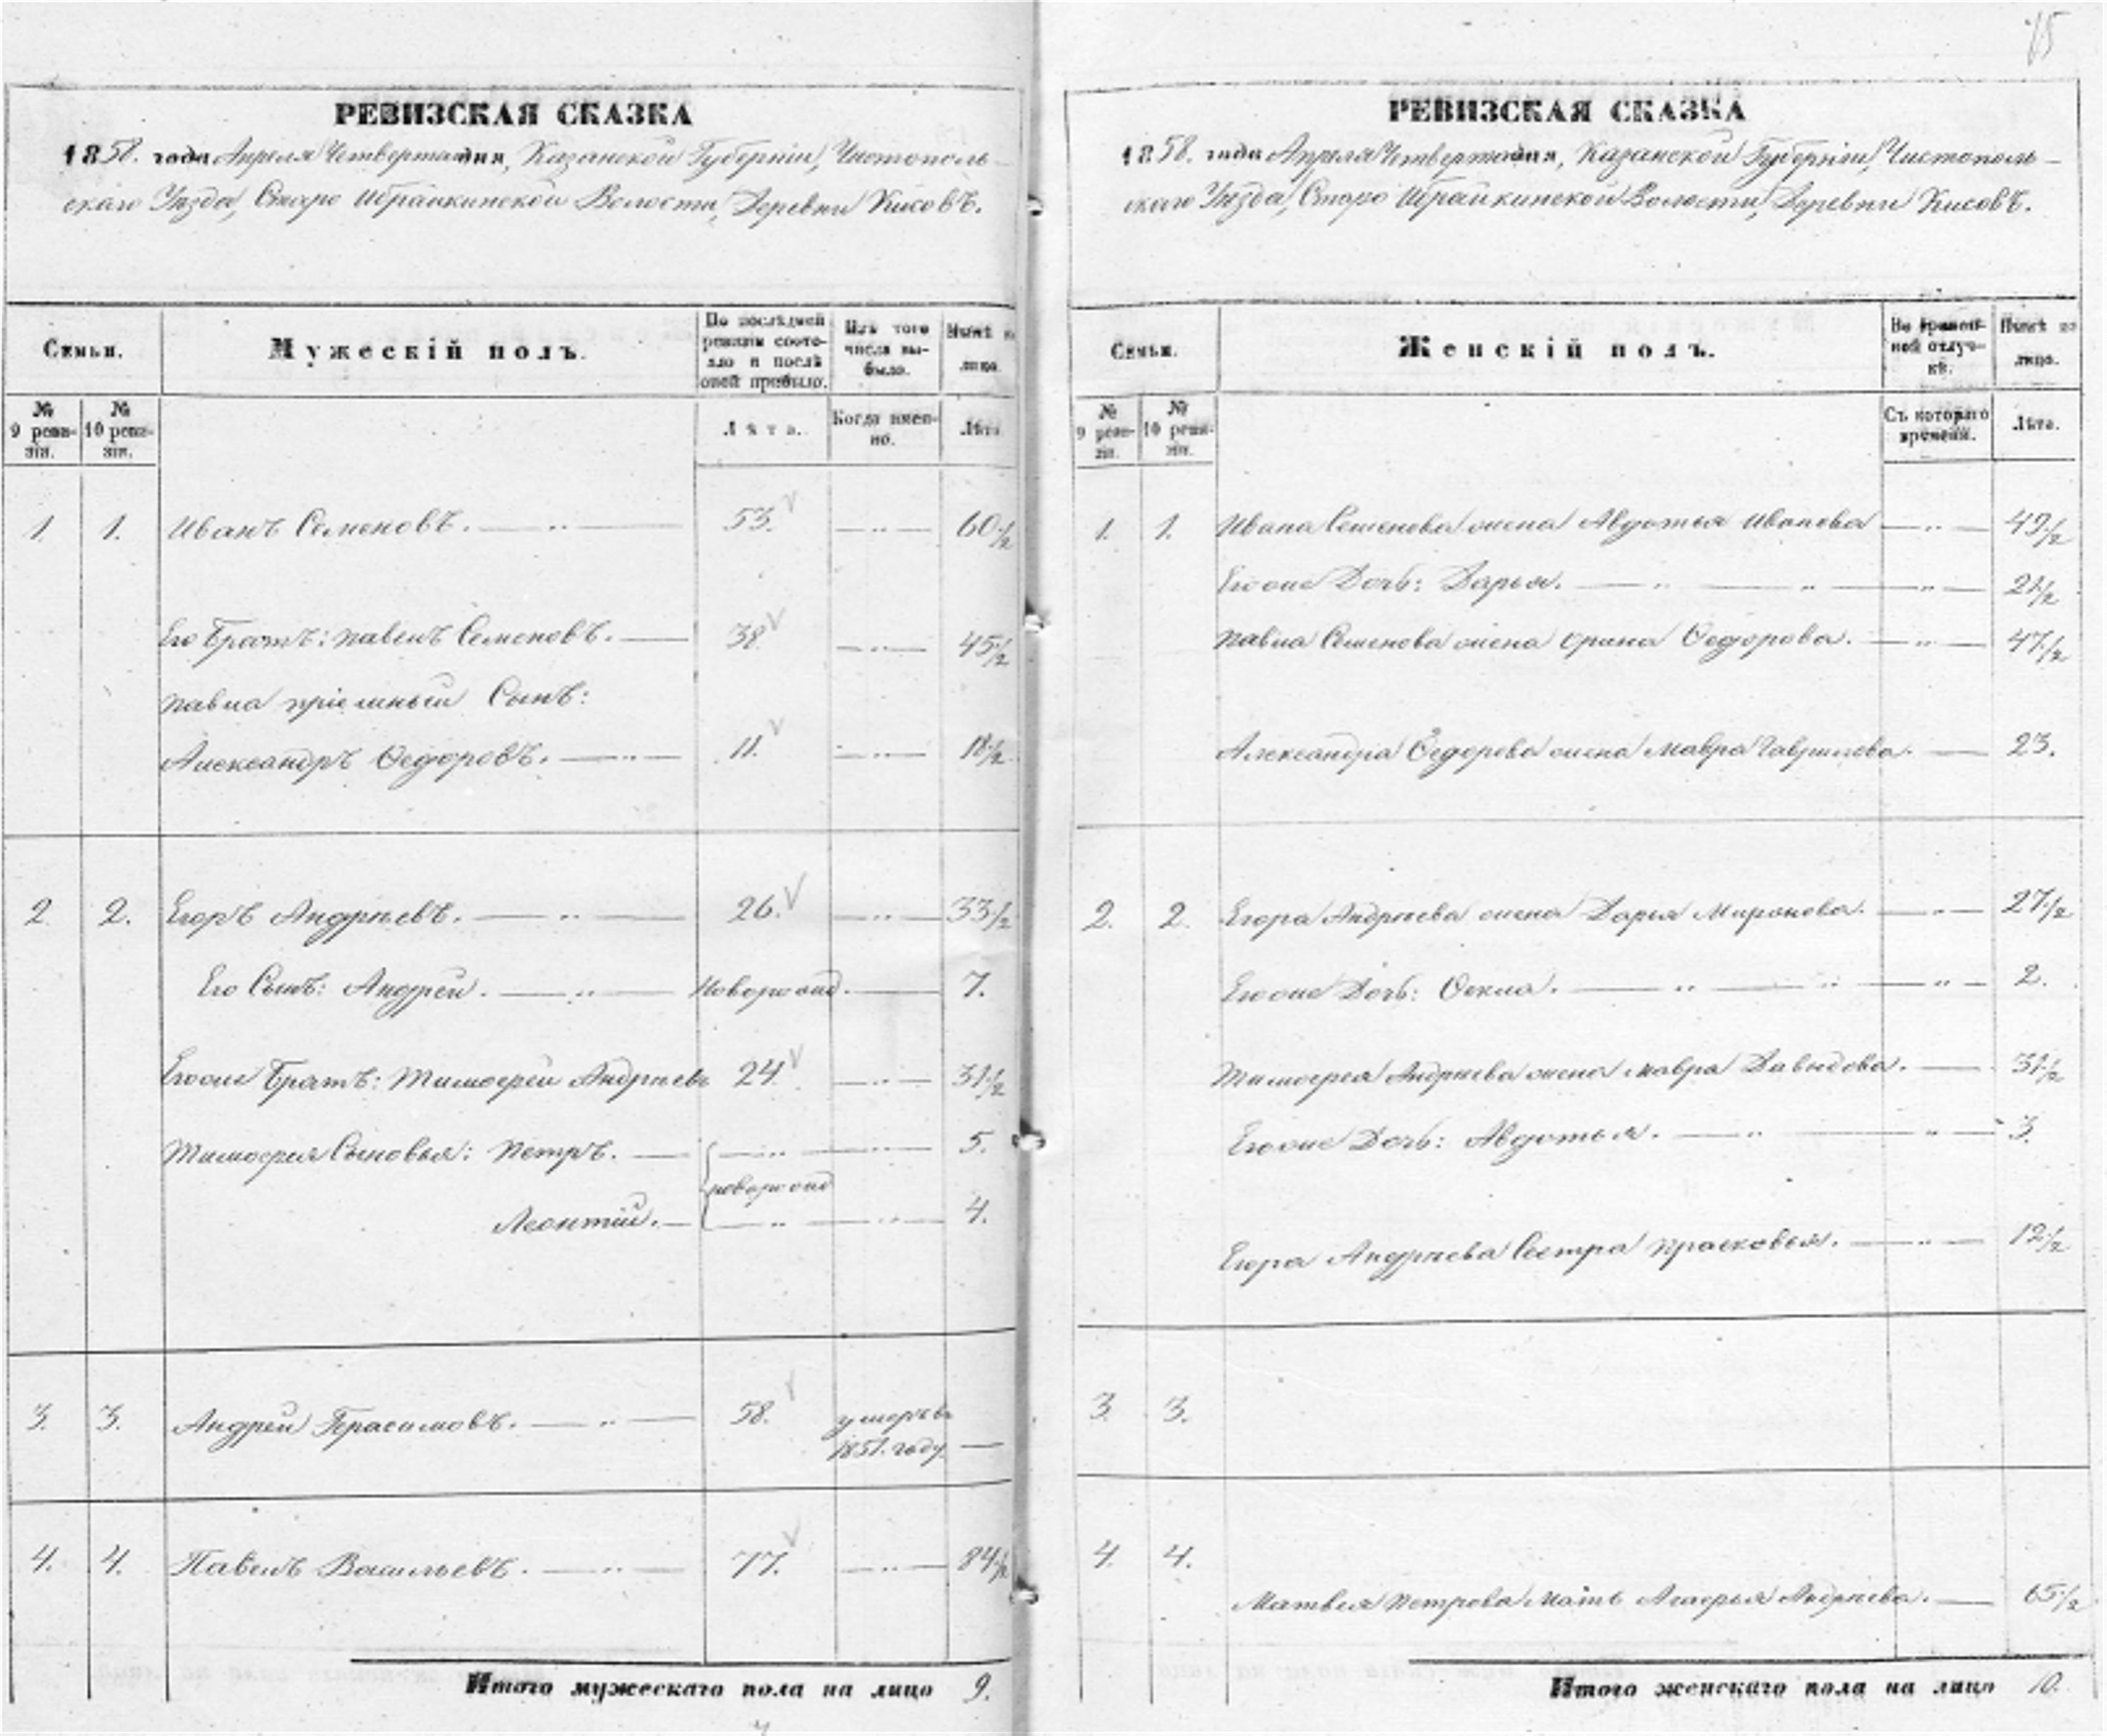 15
РЕВИЗСКАЯ СКАЗКА
1858. года Апреля Четвертаго дня, Казанской Губерніи, Чистополь-
скаго Уѣзда, Старо Ибрайкинской Волости, Деревни Кисовъ.
Семьи.
Мужескій полъ.
По послѣдней ревизіи состояло и послѣ оной прибыло.
Изъ того числа выбыло.
Нынѣ на лицо.
№ 9 ревизіи.
№ 10 ревизіи.
Лѣта.
Когда именно.
Лѣта.
1. 1. Иванъ Семеновъ. — „ — 53. — „ — 60 1/2
Его Братъ: павелъ Семеновъ. — 38 — „ — 45 1/2
павла пріемный Сынъ:
Александръ Ѳедоровъ. — „ — 11. — „ — 18 1/2
2 2. Егоръ Андрѣевъ. — „ — 26. — „ — 33 1/2
Его Сынъ: Андрей. — „ — Новорожд. — 7.
Егоже Братъ: Тимоѳей Андрѣевъ 24. — „ — 31 1/2
Тимоѳея Сыновья: Петръ. — „ — „ — 5.
новорожд
Леонтій. — „ — „ — 4.
3. 3. Андрей Герасимовъ. — „ — 58. умеръ въ
1851. году. —
4. 4. Павелъ Васильевъ. — „ — 77. — „ — 84 1/2
Итого мужескаго пола на лицо 9.
РЕВИЗСКАЯ СКАЗКА
1858. года Апреля Четвертаго дня, Казанской Губерніи, Чистополь-
скаго Уѣзда, Старо Ибрайкинской Волости, Деревни Кисовъ.
Семьи.
Женскій полъ.
Во временной отлучкѣ.
Нынѣ на лицо.
№ 9 ревизіи.
№ 10 ревизіи.
Съ котораго времени.
Лѣта.
1. 1. Ивана Семенова жена Авдотья Иванова — „ — 49 1/2
Егоже Дочь: Дарья. — „ — „ — „ — 21 1/2
павла Семенова жена Ирина Ѳедорова. — „ — 47 1/2
Александра Ѳедорова жена мавра Гаврилова. — 23.
2. 2. Егора Андрѣева жена Дарья Миронова. — „ — 27 1/2
Егоже Дочь: Ѳекла. — „ — „ — „ — 2.
Тимоѳея Андрѣева жена мавра Давыдова. — 31 1/2
Егоже Дочь: Авдотья. — „ — „ — 3.
Егора Андрѣева Сестра прасковья. — „ — 12 1/2
3 3.
4 4.
Матвея Петрова Мать Андрѣева. — 65 1/2
Итого женскаго пола на лицо 10.